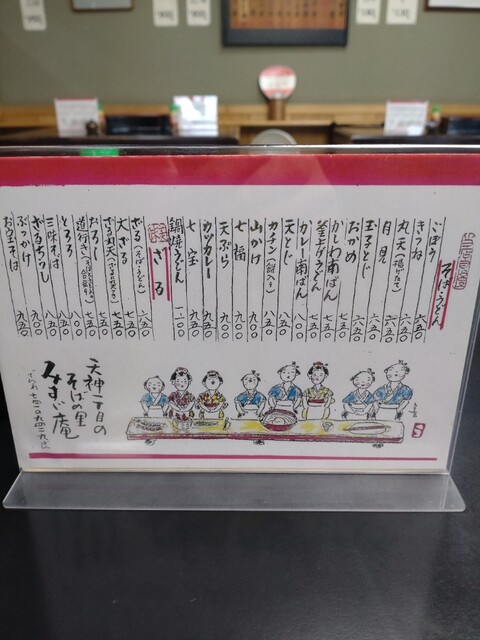 そば・うどん
ごぼう 六五〇
きつね 六五〇
丸天(揚げたて) 六五〇
月見 六五〇
おかめ 七五〇
玉子とじ 六五〇
かしわ南ばん 七五〇
釜上げうどん 七五〇
カレー南ばん 八〇〇
天とじ 八五〇
カチン(餅入り) 八五〇
山かけ 八〇〇
七福 九〇〇
天ぷら 九〇〇
カツカレー 九五〇
七宝 九〇〇
鍋焼うどん 一一〇〇
ざる
ざる(そば・うどん) 六五〇
大ざる 七五〇
おろし 七五〇
とろろ 八〇〇
三味そば 八〇〇
ざるおろし 九〇〇
ぶっかけ 九〇〇
お宝そば 九五〇
天神一丁目の
そばの里
みすゞ庵